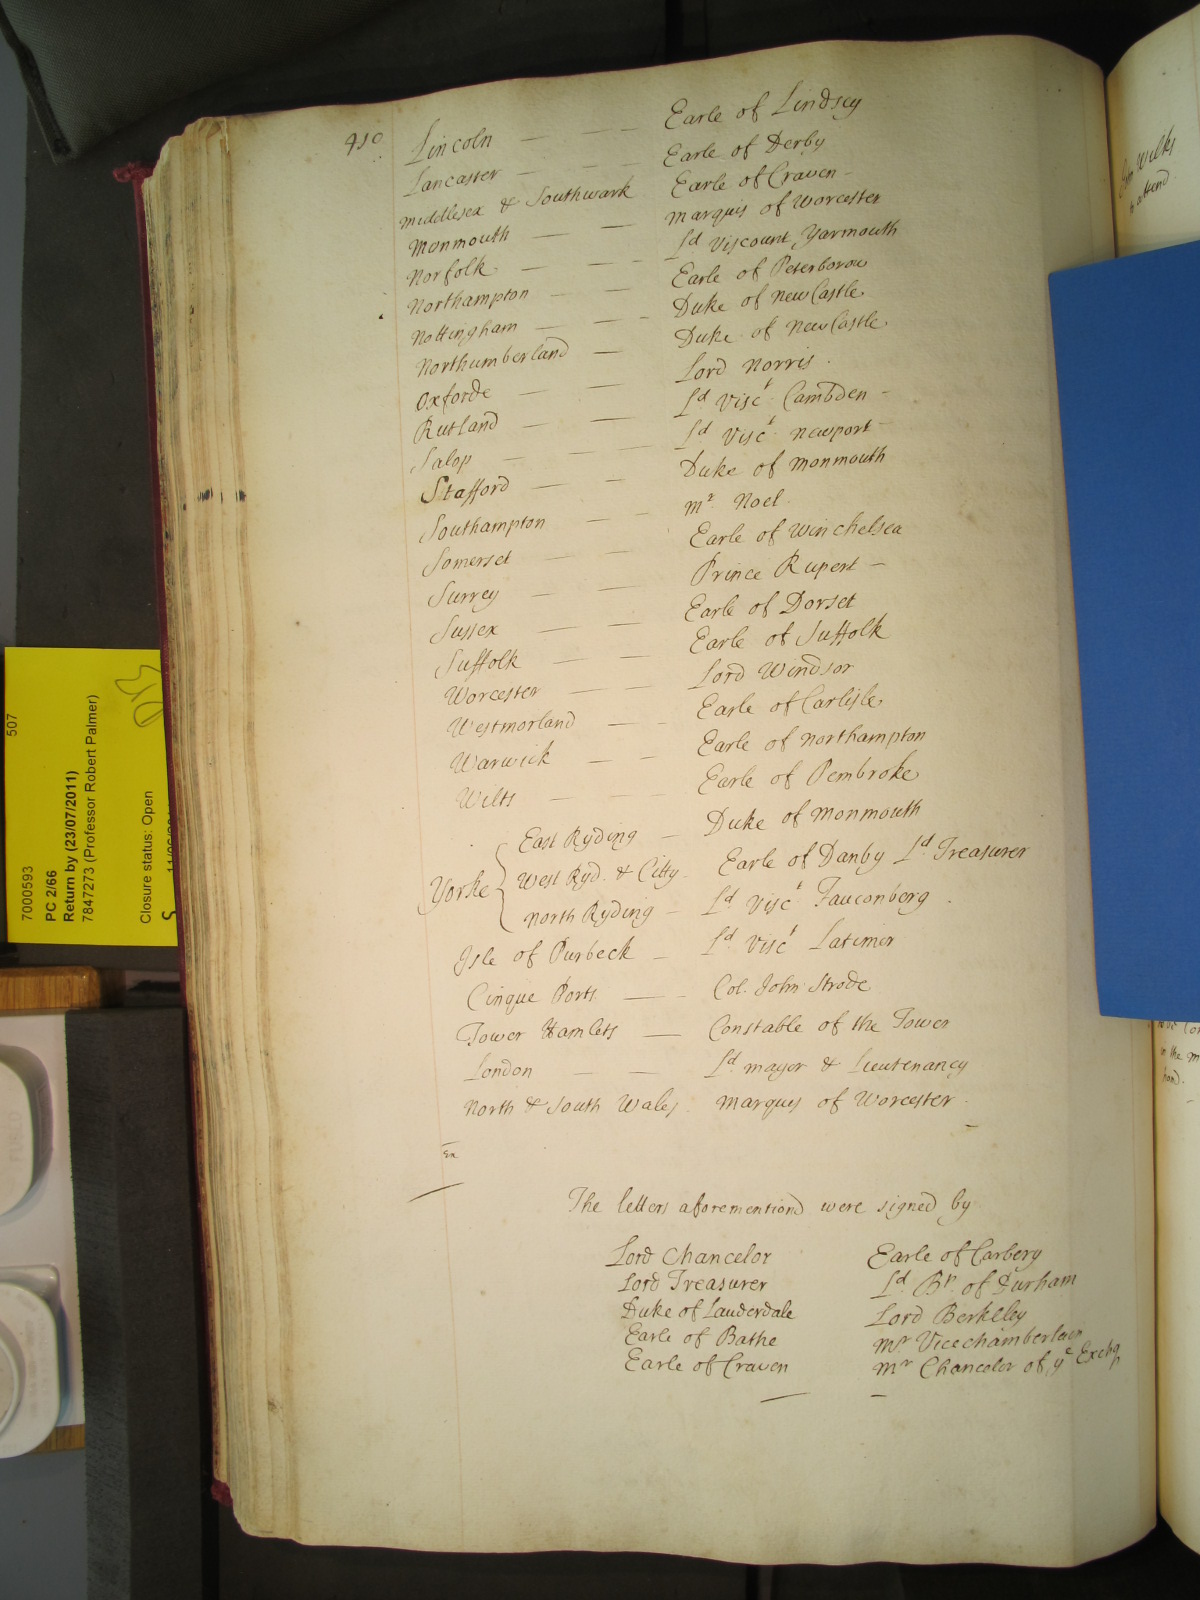 410
Lincoln — — — Earle of Lindsey
Lancaster — — — Earle of Derby
Middlesex & Southwark Earle of Craven -
Monmouth — — Marquis of Worcester
Norfolk — — - Ld Viscount Yarmouth
Northampton — — Earle of Peterborow
Nottingham — — - Duke of newCastle
Northumberland — Duke of newCastle
Oxforde — — Lord Norris .
Rutland — — Ld Visct Cambden -
Salop — — — Ld Visct newport -
Stafford — — Duke of Monmouth
Southampton — — Mr Noel
Somerset — — Earle of Winchelsea
Surrey — — Prince Rupert —
Sussex — — Earle of Dorset
Suffolk — — Earle of Suffolk
Worcester — — Lord Windsor
Westmorland — - Earle of Carlisle
Warwick — - Earle of Northampton
Wilts — — Earle of Pembroke
Yorke
East Ryding — Duke of Monmouth
West Ryd. & Citty - Earle of Danby Ld Treasurer
North Ryding — Ld Visct Fauconberg .
Isle of Purbeck — Ld Visct Latimer
Cinque Ports — - Col. John Strode
Tower Hamlets — Constable of the Tower
London — — Ld mayor & Lieutenancy
North & South Wales . Marquis of Worcester -
Ex
The letters aforementiond were signed by
Lord Chancelor Earle of Carbery
Lord Treasurer Ld Bp. of Durham
Duke of Lauderdale Lord Berkeley
Earle of Bathe Mr Vicechamberlain
Earle of Craven Mr Chancelor of ye Excheq
Wilks
to attend
in the
507
7000593
PC 2/66
Return by (23/07/2011)
7847273 (Professor Robert Palmer)
Closure status: Open